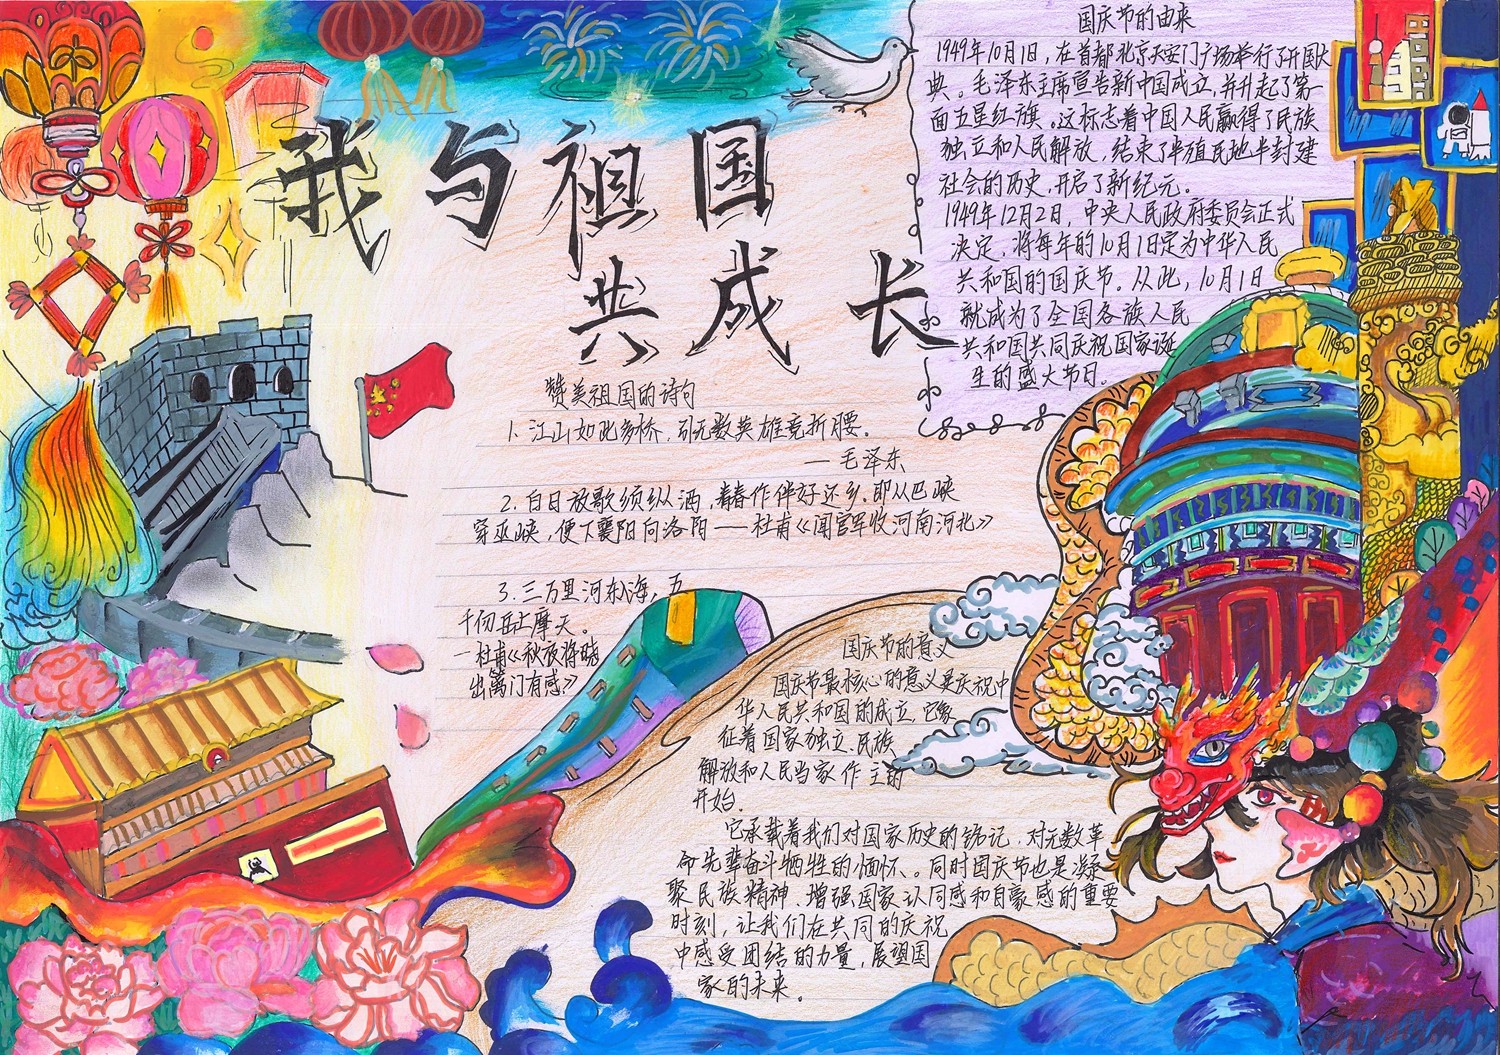 我与祖国
共成长
国庆节的由来
1949年10月1日,在首都北京天安门广场举行了开国大
典。毛泽东主席宣告新中国成立,并升起了第一
面五星红旗。这标志着中国人民赢得了民族
独立和人民解放,结束了半殖民地半封建
社会的历史,开启了新纪元。
1949年12月2日,中央人民政府委员会正式
决定,将每年的10月1日定为中华人民
共和国的国庆节。从此,10月1日
就成为了全国各族人民
共和国共同庆祝国家诞
生的盛大节日。
赞美祖国的诗句
1、江山如此多桥,引无数英雄竞折腰。
—毛泽东
2.白日放歌须纵酒,青春作伴好还乡.即从巴峡
穿巫峡,便下襄阳向洛阳——杜甫《闻官军收河南河北》
3.三万里河东海,五
千仞岳上摩天。
—杜甫《秋夜将晓
出篱门有感》
国庆节的意义
国庆节最核心的意义是庆祝中
华人民共和国的成立,它象
征着国家独立、民族
解放和人民当家作主的
开始.
它承载着我们对国家历史的铭记,对无数革
命先辈奋斗牺牲的缅怀、。同时国庆节也是凝
聚民族精神、增强国家认同感和自豪感的重要
时刻,让我们在共同的庆祝
中感受团结的力量,展望国
家的未来。